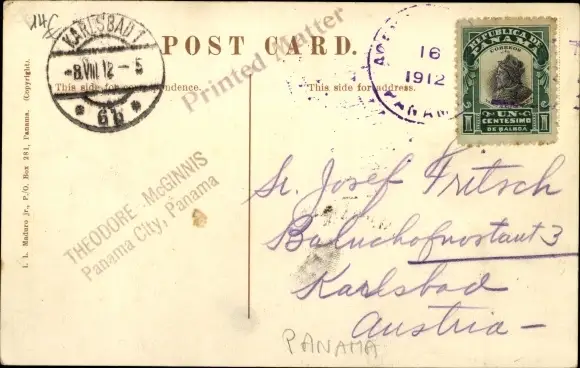 14
KARLSBAD 1
-8.VIII 12 - 5
* 6b *
POST CARD.
Printed Matter
This side for correspondence.
This side for address.
16
1912
PANAMA
REPUBLICA DE
PANAMA
CORREOS
1 UN 1
CENTESIMO
DE BALBOA
I. L. Maduro jr., P./O. Box 281, Panama. (Copyright).
THEODORE McGINNIS
Panama City, Panama
Sr. Josef Fritsch
3
Karlsbad
Austria -
PANAMA